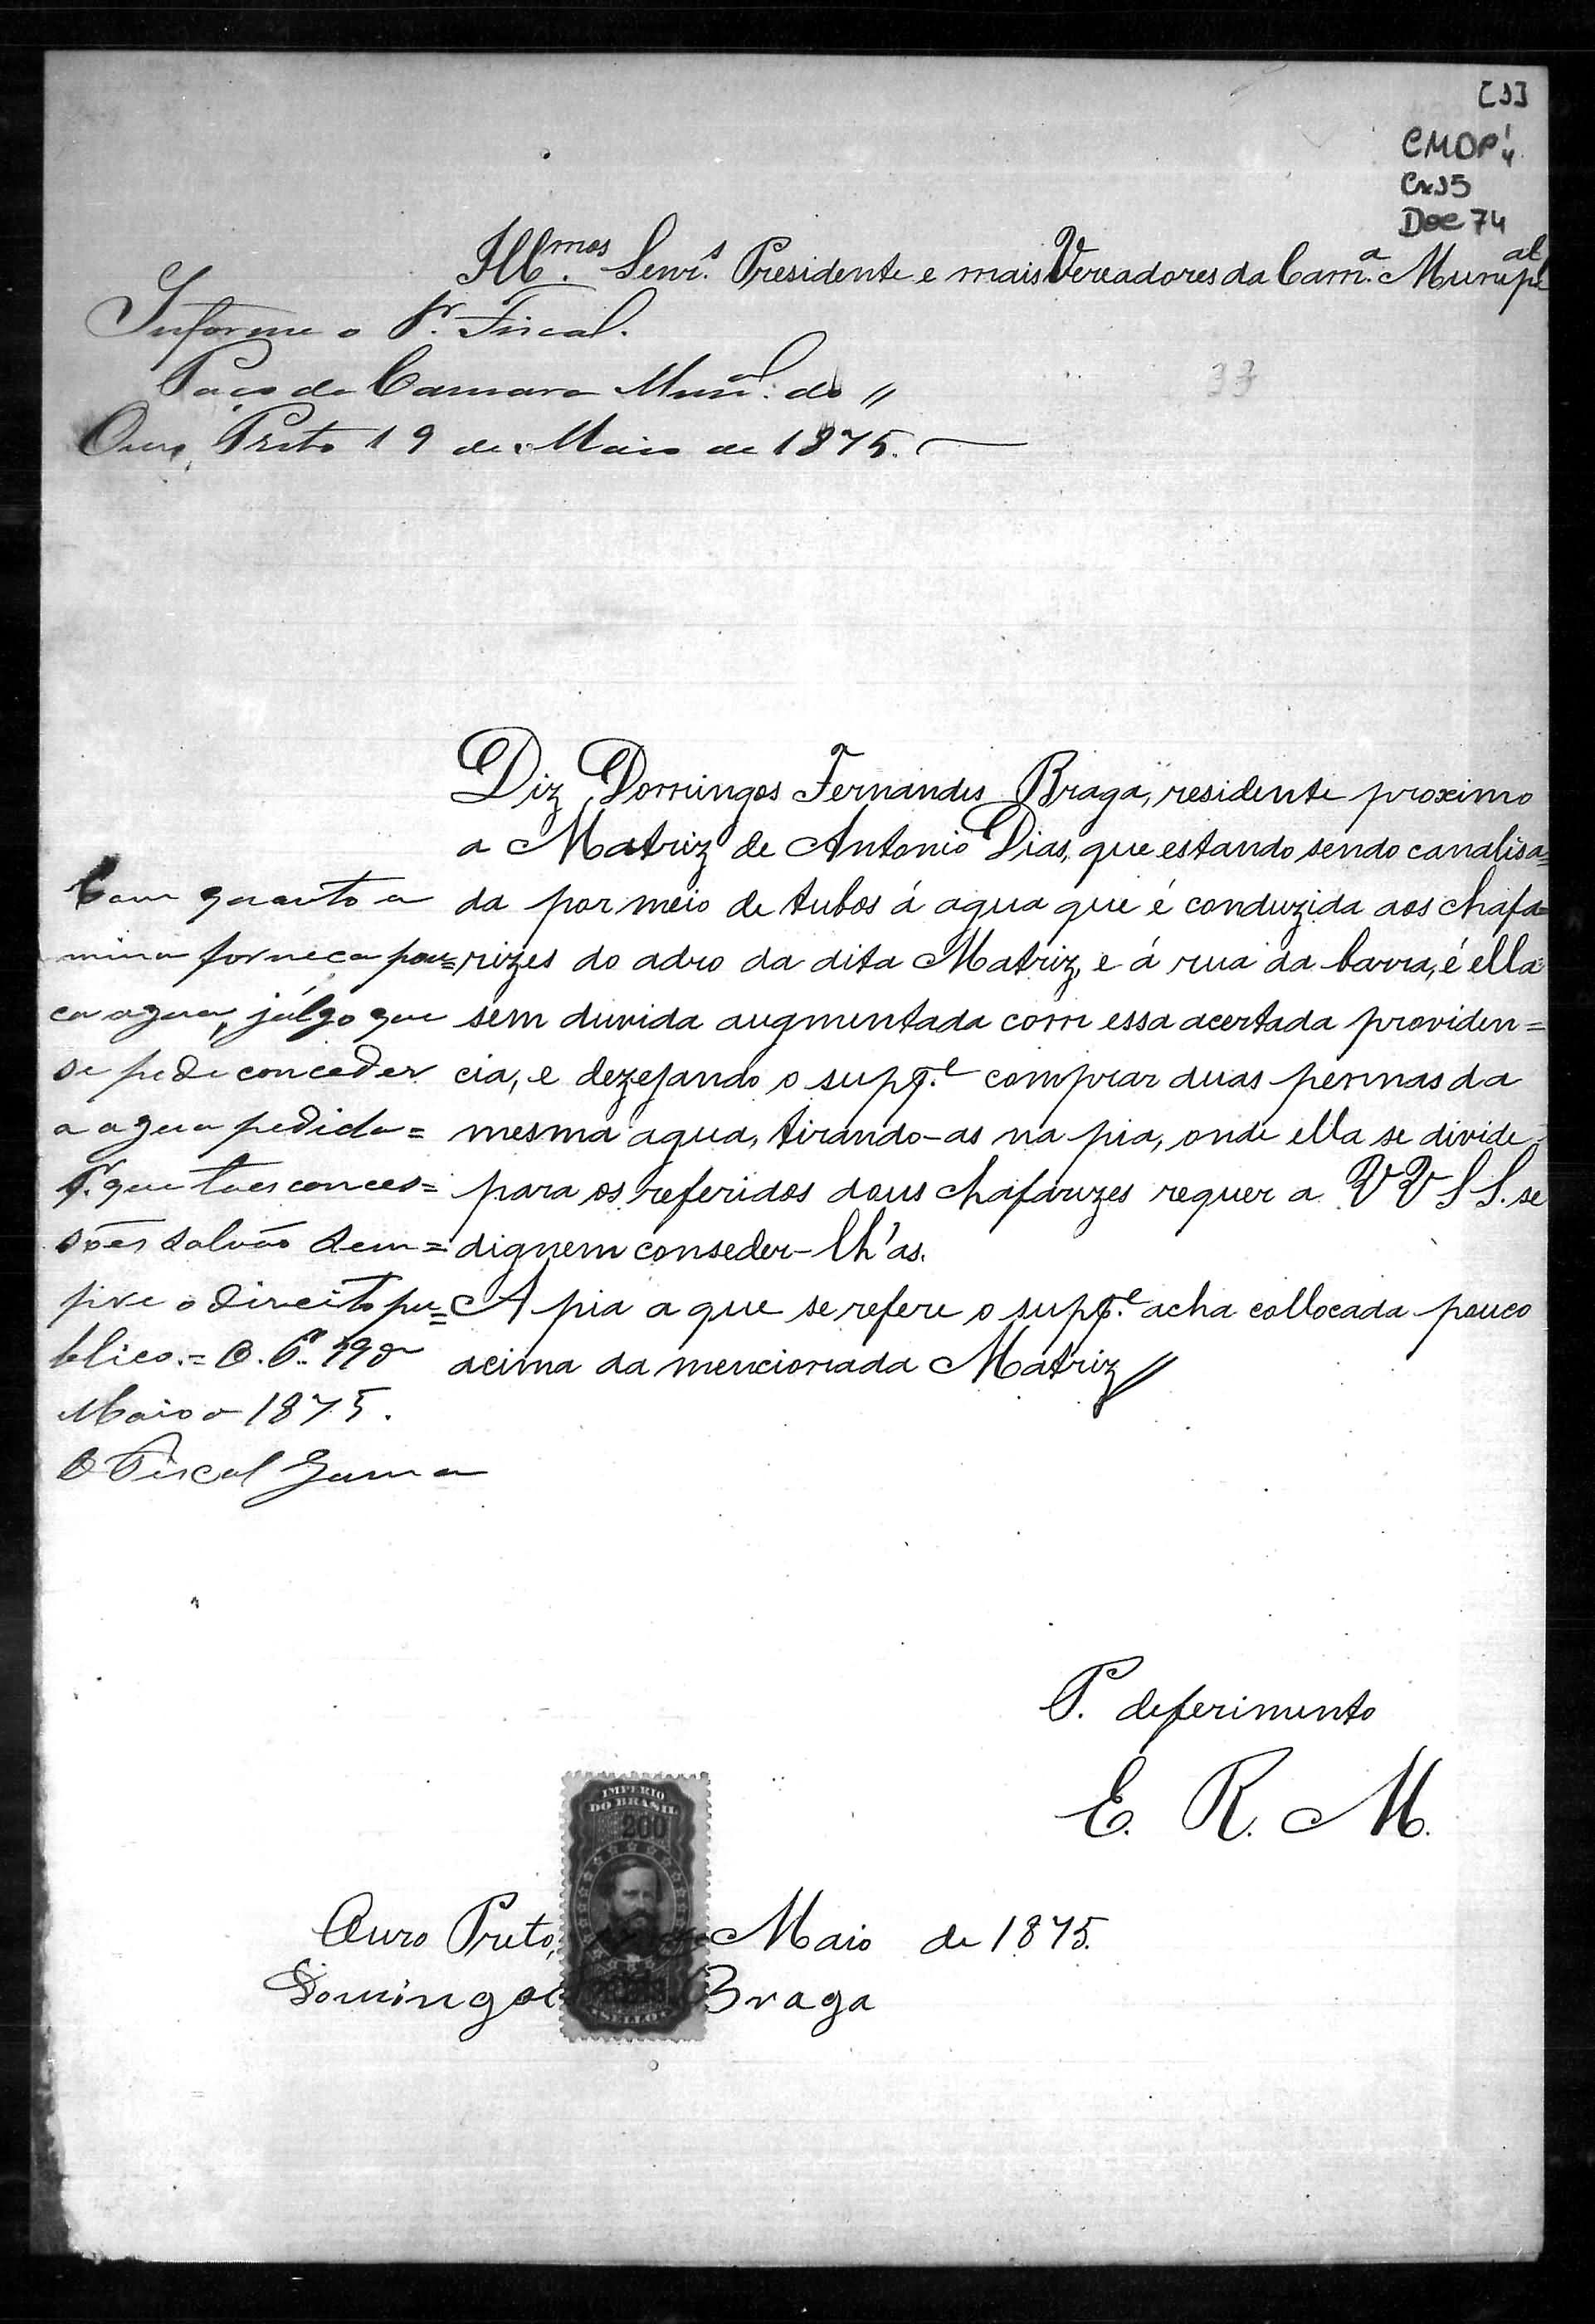 [1]
CMOP 1/4
Cx 15
Doc 74
Ill.mos Senr.s Presidente e mais Vereadores da Cam.a Municipal
Informe o Sr. Fiscal.
Paço da Camara Mun.al do //
Ouro Preto 19 de Maio de 1875.
33
Diz Domingos Fernandes Braga, residente proximo
a Matriz de Antonio Dias, que estando sendo canalisa=
da por meio de tubos á agua que é conduzida aos chafa=
rizes do adro da dita Matriz, e á rua da barra, é ella
sem duvida augmentada com essa acertada providen=
cia, e dezejando o supp.e comprar duas pennas da
mesma agua, tirando-as na pia, onde ella se divide
para os referidos dous chafarizes requer a VV SS. se
dignem conseder-lh'as.
A pia a que se refere o supp.e acha collocada pouco
acima da mencionada Matriz //
Com quanto a
mina forneça pou=
ca agua, julgo que
se pede conceder
a agua pedida=
q. que taes conces=
sões salvão sem=
pre o direito pu=
blico.= O. P.
Maio 1875.
O Fiscal Gama
P. deferimento
E. R. M.
IMPERIO
DO BRASIL
200
SELLO
Ouro Preto, Maio de 1875.
Domingos Braga